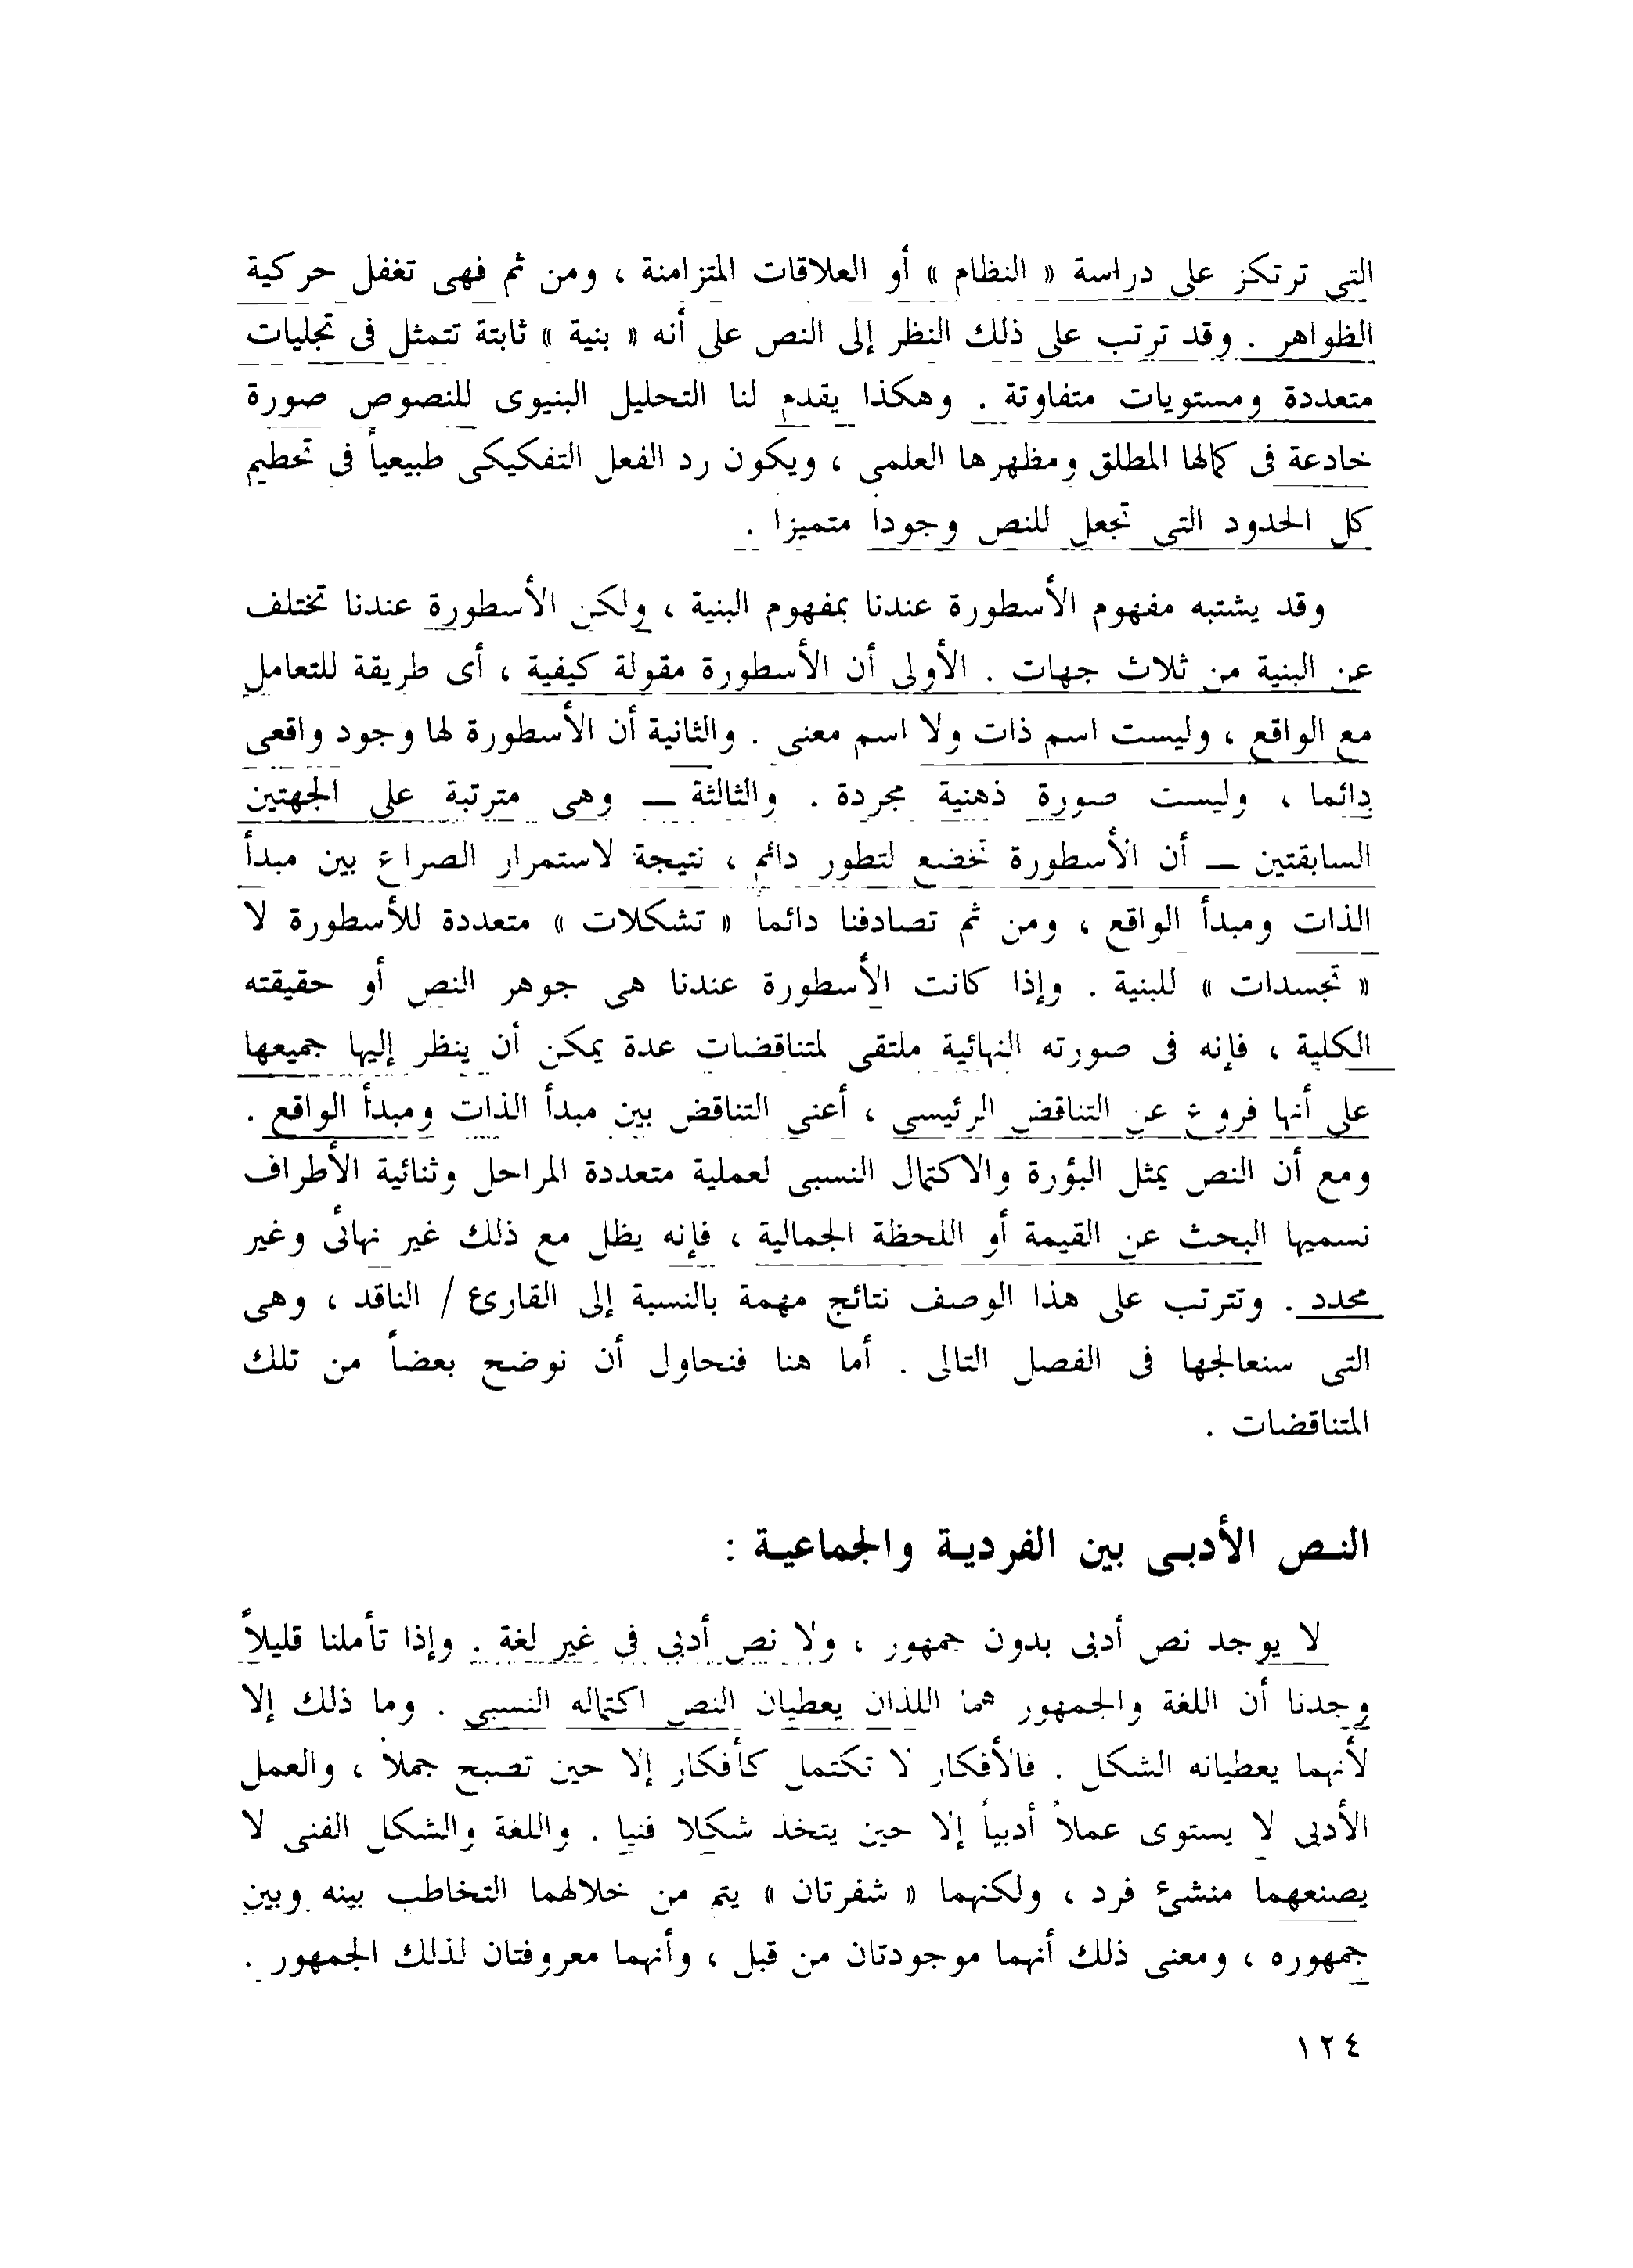 التى ترتكز على دراسة « النظام » أو العلاقات المتزامنة ، ومن ثم فهى تغفل حركية
الظواهر . وقد ترتب على ذلك النظر إلى النص على أنه « بنية » ثابتة تتمثل فى تجليات
متعددة ومستويات متفاوتة . وهكذا يقدم لنا التحليل البنيوى للنصوص صورة
خادعة فى كمالها المطلق ومظهرها العلمى ، ويكون رد الفعل التفكيكى طبيعياً فى تحطيم
كل الحدود التى تجعل للنص وجوداً متميزاً .
وقد يشتبه مفهوم الأسطورة عندنا بمفهوم البنية ، ولكن الأسطورة عندنا تختلف
عن البنية من ثلاث جهات . الأولى أن الأسطورة مقولة كيفية ، أى طريقة للتعامل
مع الواقع ، وليست اسم ذات ولا اسم معنى . والثانية أن الأسطورة لها وجود واقعى
دائما ، وليست صورة ذهنية مجردة . والثالثة ــ وهى مترتبة على الجهتين
السابقتين ــ أن الأسطورة تخضع لتطور دائم ، نتيجة لاستمرار الصراع بين مبدأ
الذات ومبدأ الواقع ، ومن ثم تصادفنا دائماً « تشكلات » متعددة للأسطورة لا
« تجسدات » للبنية . وإذا كانت الأسطورة عندنا هى جوهر النص أو حقيقته
الكلية ، فإنه فى صورته النهائية ملتقى لمتناقضات عدة يمكن أن ينظر إليها جميعها
على أنها فروع عن التناقض الرئيسى ، أعنى التناقض بين مبدأ الذات ومبدأ الواقع .
ومع أن النص يمثل البؤرة والاكتمال النسبى لعملية متعددة المراحل وثنائية الأطراف
نسميها البحث عن القيمة أو اللحظة الجمالية ، فإنه يظل مع ذلك غير نهائى وغير
محدد . وتترتب على هذا الوصف نتائج مهمة بالنسبة إلى القارئ / الناقد ، وهى
التى سنعالجها فى الفصل التالى . أما هنا فنحاول أن نوضح بعضاً من تلك
المتناقضات .
النـص الأدبـى بين الفرديـة والجماعيـة :
لا يوجد نص أدبى بدون جمهور ، ولا نص أدبى فى غير لغة . وإذا تأملنا قليلاً
وجدنا أن اللغة والجمهور هما اللذان يعطيان النص اكتماله النسبى . وما ذلك إلا
لأنهما يعطيانه الشكل . فالأفكار لا تكتمل كأفكار إلا حين تصبح جملاً ، والعمل
الأدبى لا يستوى عملاً أدبياً إلا حين يتخذ شكلا فنيا . واللغة والشكل الفنى لا
يصنعهما منشئ فرد ، ولكنهما « شفرتان » يتم من خلالهما التخاطب بينه وبين
جمهوره ، ومعنى ذلك أنهما موجودتان من قبل ، وأنهما معروفتان لذلك الجمهور .
١٢٤